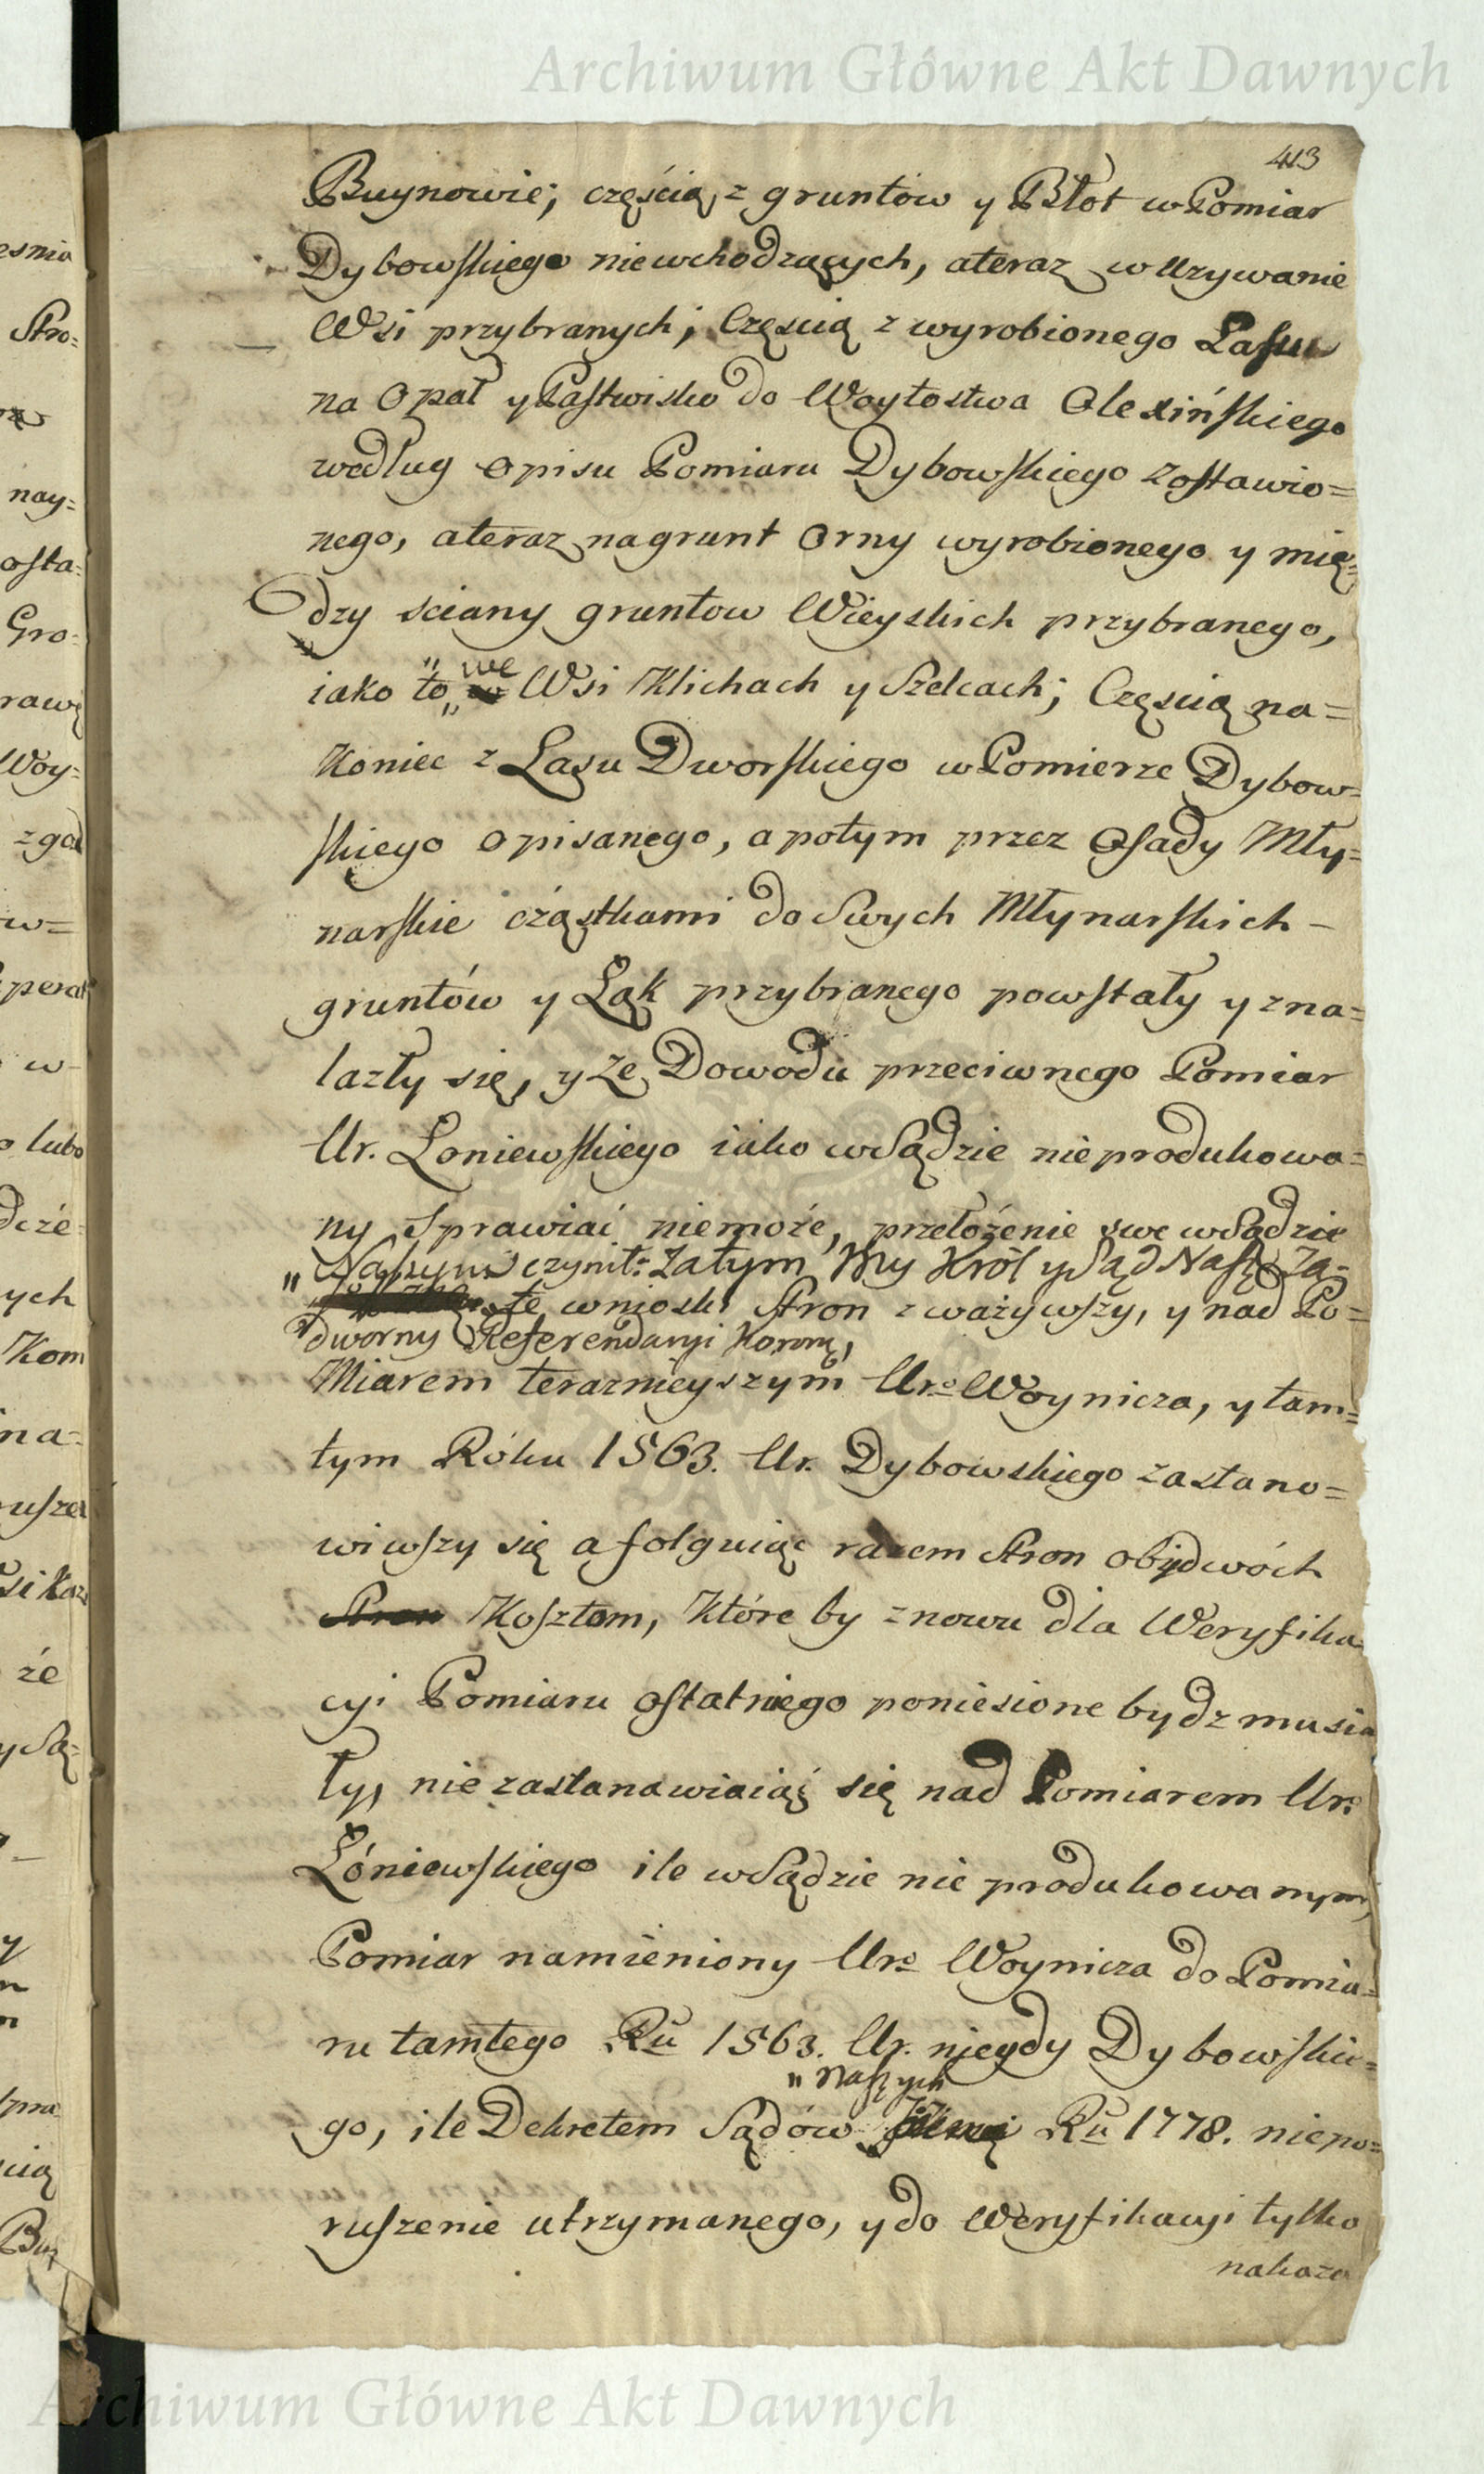 Archiwum Główne Akt Dawnych
413
Buynowie; częścią z gruntów y Błot w Pomiar
Dybowskiego niewchodzących, ateraz w Używanie
Wsi przybranych; Częscią z wyrobionego Lasu
na Opał y Pastwisko do Woytostwa Olexińskiego
według opisu Pomiaru Dybowskiego zostawio=
nego, ateraz na grunt Orny wyrobionego y mię=
dzy sciany gruntow Wieyskich przybranego,
iako to we Wsi Klichach y Szelcach; Częscią na=
koniec z Lasu Dworskiego w Pomierze Dybow=
skiego opisanego, a potym przez Osady Mły=
narskie cząstkami do Swych Młynarskich –
gruntów y Łąk przybranego powstały y zna=
lazły się, y że Dowodu przeciwnego Pomiar
Ur. Loniewskiego iako w Sądzie nieprodukowa=
ny Sprawiać niemoże, przełożenie swe w Sądzie
" Naszym czynił: Zatym My Król y Sąd Nasz Za=
te wnioski Stron zważywszy, y nad Po=
dworny Referendaryi Koronny,
Miarem teraznieyszym Uro Woynicza, y tam=
tym Roku 1563. Ur. Dybowskiego zastano=
wiwszy się a folguiąc razem Stron obydwóch
Stron Kosztom, które by znowu dla Weryfika
cyi Pomiaru ostatniego poniesione bydz musia
ły, nie zastanawiaiąć się nad Pomiarem Uro
Łóniewskiego ile w Sądzie nie produkowanym,
Pomiar namieniony Uro Woynicza do Pomia=
ru tamtego Ru 1563. Ur. niegdy Dybowskie=
" Naszych
go, ile Dekretem Sądów Ru 1778. niepo=
ruszenie utrzymanego, y do Weryfikacyi tylko
nakaza
Archiwum Główne Akt Dawnych